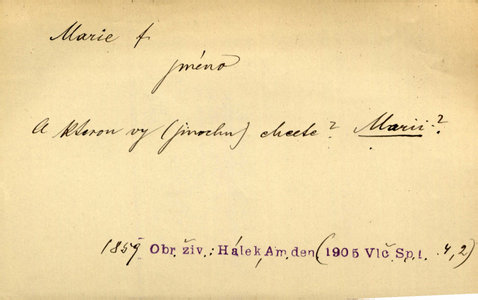 Marie f.
jméno
A kterou vy (jinochu) chcete? Marii?
1859 Obr. živ.: Hálek, Am. den. (1905 Vlč. Sp. 1. 4, 2)